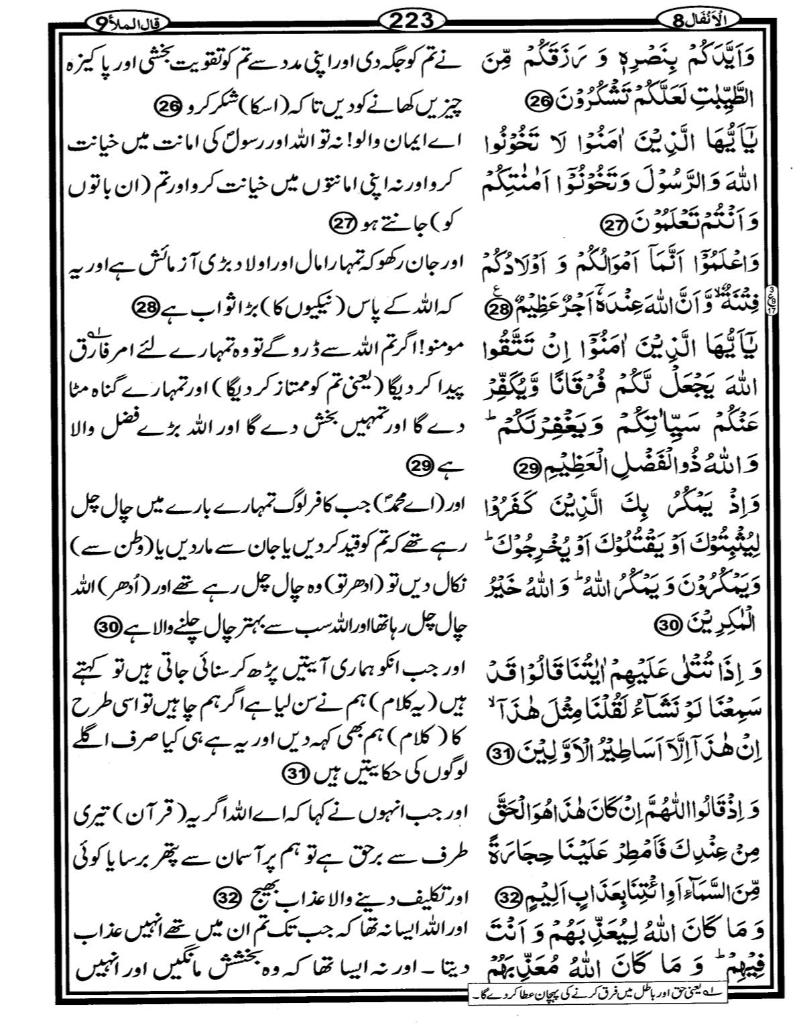 الانفال 8
223
قال الملأ 9
وَاَيَّدَكُمْ بِنَصْرِهٖ وَ رَزَقَكُمْ مِّنَ
الطَّيِّبٰتِ لَعَلَّكُمْ تَشْكُرُوْنَ 26
يٰٓاَيُّهَا الَّذِيْنَ اٰمَنُوْا لَا تَخُوْنُوا
اللّٰهَ وَالرَّسُوْلَ وَتَخُوْنُوْٓا اَمٰنٰتِكُمْ
وَاَنْتُمْ تَعْلَمُوْنَ 27
وَاعْلَمُوْٓا اَنَّمَآ اَمْوَالُكُمْ وَ اَوْلَادُكُمْ
فِتْنَةٌ ۙ وَّاَنَّ اللّٰهَ عِنْدَهٗٓ اَجْرٌ عَظِيْمٌ 28 ع
يٰٓاَيُّهَا الَّذِيْنَ اٰمَنُوْٓا اِنْ تَتَّقُوا
اللّٰهَ يَجْعَلْ لَّكُمْ فُرْقَانًا وَّيُكَفِّرْ
عَنْكُمْ سَيِّاٰتِكُمْ وَيَغْفِرْلَكُمْ ؕ
وَاللّٰهُ ذُوالْفَضْلِ الْعَظِيْمِ 29
وَاِذْ يَمْكُرُ بِكَ الَّذِيْنَ كَفَرُوْا
لِيُثْبِتُوْكَ اَوْ يَقْتُلُوْكَ اَوْ يُخْرِجُوْكَ ؕ
وَيَمْكُرُوْنَ وَ يَمْكُرُ اللّٰهُ ؕ وَ اللّٰهُ خَيْرُ
الْمٰكِرِيْنَ 30
وَ اِذَا تُتْلٰى عَلَيْهِمْ اٰيٰتُنَا قَالُوْا قَدْ
سَمِعْنَا لَوْ نَشَآءُ لَقُلْنَا مِثْلَ هٰذَآ ۙ
اِنْ هٰذَآ اِلَّآ اَسَاطِيْرُ الْاَوَّلِيْنَ 31
وَ اِذْ قَالُوا اللّٰهُمَّ اِنْ كَانَ هٰذَا هُوَ الْحَقَّ
مِنْ عِنْدِكَ فَاَمْطِرْ عَلَيْنَا حِجَارَةً
مِّنَ السَّمَآءِ اَوِ ائْتِنَا بِعَذَابٍ اَلِيْمٍ 32
وَ مَا كَانَ اللّٰهُ لِيُعَذِّبَهُمْ وَ اَنْتَ
فِيْهِمْ ؕ وَ مَا كَانَ اللّٰهُ مُعَذِّبَهُمْ
نے تم کو جگہ دی اور اپنی مدد سے تم کو تقویت بخشی اور پاکیزہ
چیزیں کھانے کو دیں تاکہ (اسکا) شکر کرو 26
اے ایمان والو! نہ تو اللہ اور رسولؐ کی امانت میں خیانت
کرو اور نہ اپنی امانتوں میں خیانت کرو اور تم (ان باتوں
کو) جانتے ہو 27
اور جان رکھو کہ تمہارا مال اور اولاد بڑی آزمائش ہے اور یہ
کہ اللہ کے پاس (نیکیوں کا) بڑا ثواب ہے 28
مومنو! اگر تم اللہ سے ڈرو گے تو وہ تمہارے لئے امر فارق ؎۱
پیدا کر دیگا (یعنی تم کو ممتاز کر دیگا) اور تمہارے گناہ مٹا
دے گا اور تمہیں بخش دے گا اور اللہ بڑے فضل والا
ہے 29
اور (اے محمدؐ) جب کافر لوگ تمہارے بارے میں چال چل
رہے تھے کہ تم کو قید کر دیں یا جان سے مار دیں یا (وطن سے)
نکال دیں تو (ادھر تو) وہ چال چل رہے تھے اور (اُدھر) اللہ
چال چل رہا تھا اور اللہ سب سے بہتر چال چلنے والا ہے 30
اور جب انکو ہماری آیتیں پڑھ کر سنائی جاتی ہیں تو کہتے
ہیں (یہ کلام) ہم نے سن لیا ہے اگر ہم چاہیں تو اسی طرح
کا (کلام) ہم بھی کہہ دیں اور یہ ہے ہی کیا صرف اگلے
لوگوں کی حکایتیں ہیں 31
اور جب انہوں نے کہا کہ اے اللہ اگر یہ (قرآن) تیری
طرف سے برحق ہے تو ہم پر آسمان سے پتھر برسا یا کوئی
اور تکلیف دینے والا عذاب بھیج 32
اور اللہ ایسا نہ تھا کہ جب تک تم ان میں تھے انہیں عذاب
دیتا ۔ اور نہ ایسا تھا کہ وہ بخشش مانگیں اور انہیں
؎۱ یعنی حق اور باطل میں فرق کرنے کی پہچان عطا کر دے گا۔